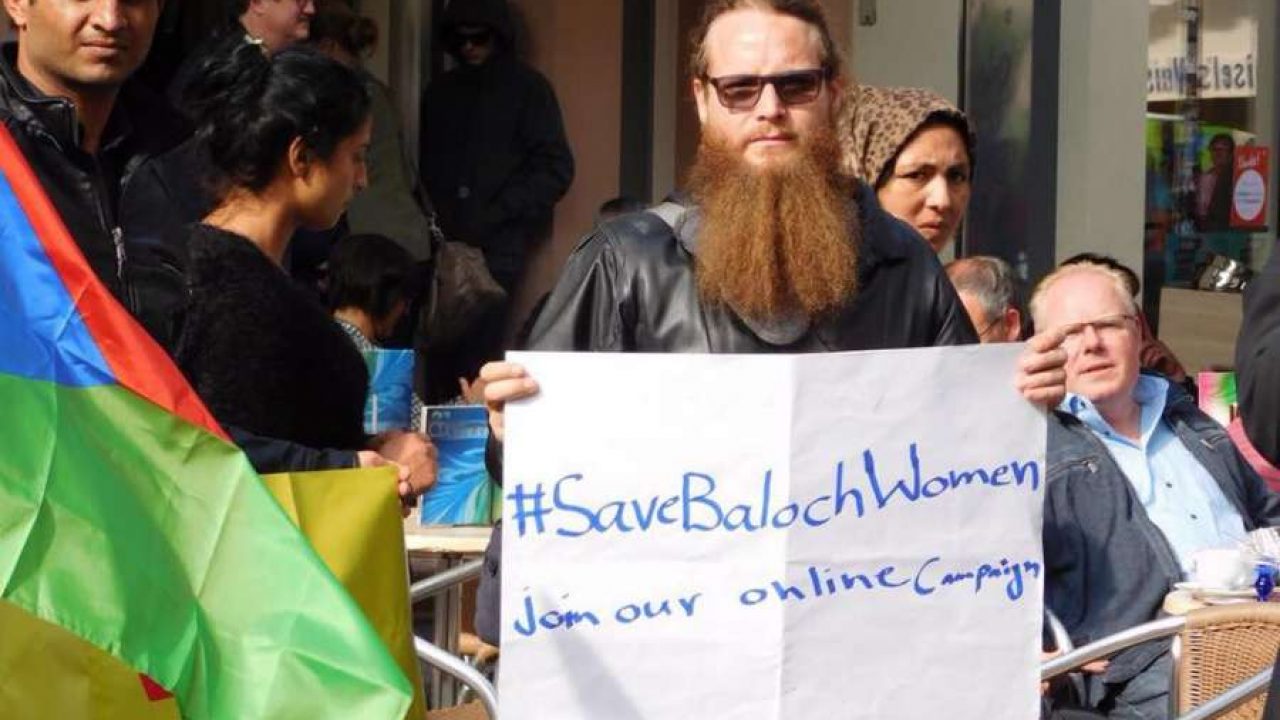 #SaveBalochWomen
join our online Campaign